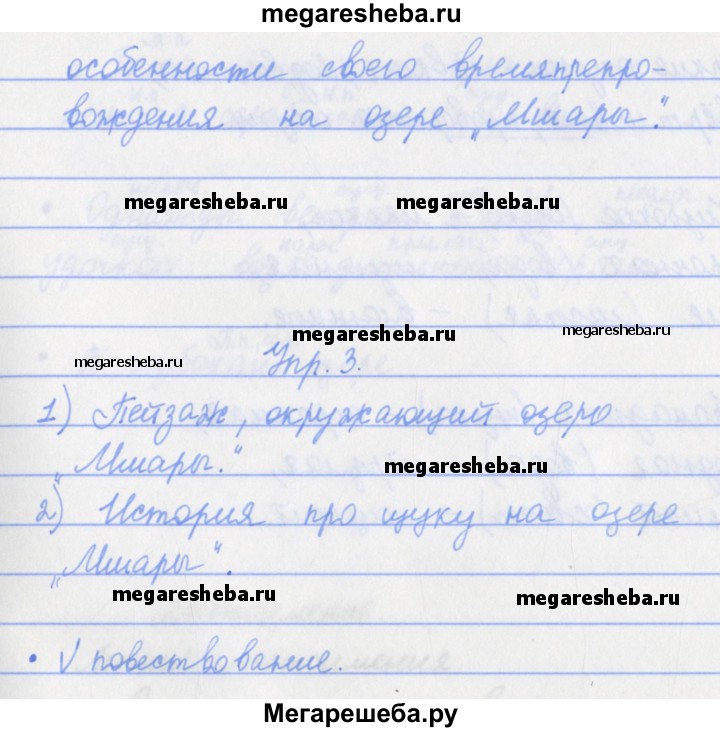 megaresheba.ru
особенности своего времяпрепро-
вождения на озере „Мшары".
megaresheba.ru megaresheba.ru
megaresheba.ru megaresheba.ru
megaresheba.ru Упр. 3.
1) Пейзаж, окружающий озеро
„Мшары."
megaresheba.ru
2) История про щуку на озере
„Мшары".
megaresheba.ru megaresheba.ru
• V повествование.
Мегарешеба.ру